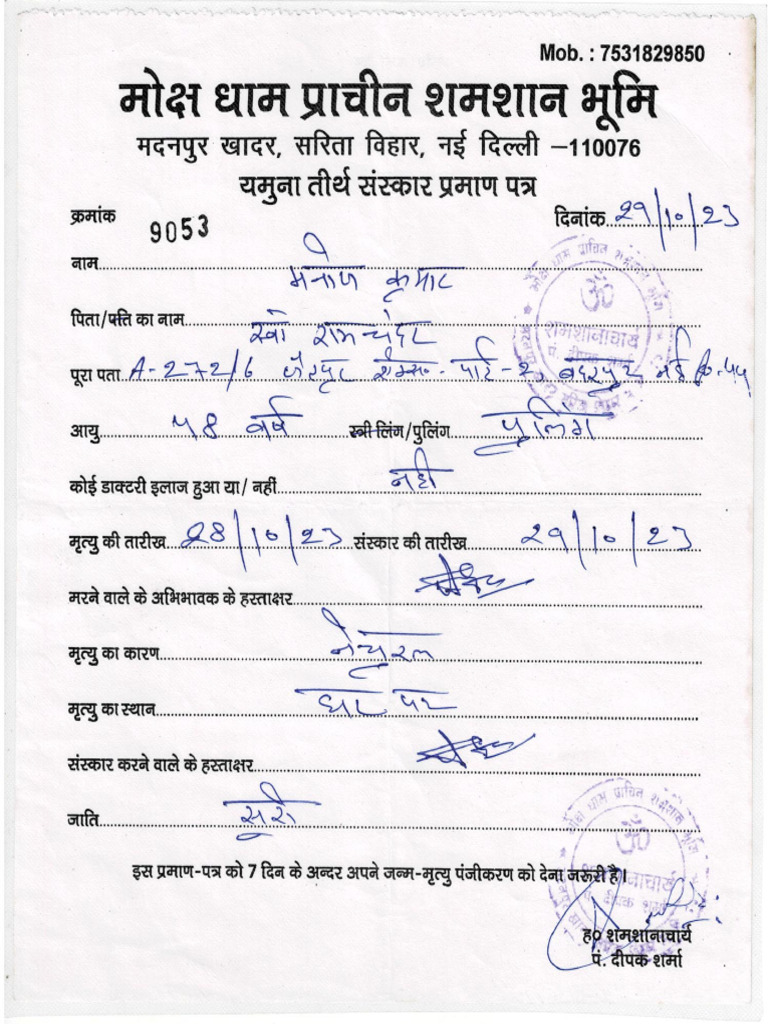 Mob. : 7531829850
मोक्ष धाम प्राचीन शमशान भूमि
मदनपुर खादर, सरिता विहार, नई दिल्ली –110076
यमुना तीर्थ संस्कार प्रमाण पत्र
क्रमांक 9053 दिनांक 29/10/23
नाम मनोज कुमार
पिता/पति का नाम स्वo रामचंदर
पूरा पता A-272/6 जैतपुर पार्ट-2, बदरपुर नई
आयु 48 वर्ष स्त्री लिंग/पुलिंग पुलिंग
कोई डाक्टरी इलाज हुआ या/नहीं नही
मृत्यु की तारीख 28/10/23 संस्कार की तारीख 29/10/23
मरने वाले के अभिभावक के हस्ताक्षर
मृत्यु का कारण नेचुरल
मृत्यु का स्थान घर पर
संस्कार करने वाले के हस्ताक्षर
जाति सूरी
इस प्रमाण-पत्र को 7 दिन के अन्दर अपने जन्म-मृत्यु पंजीकरण को देना जरूरी है।
ह० शमशानाचार्य
पं. दीपक शर्मा